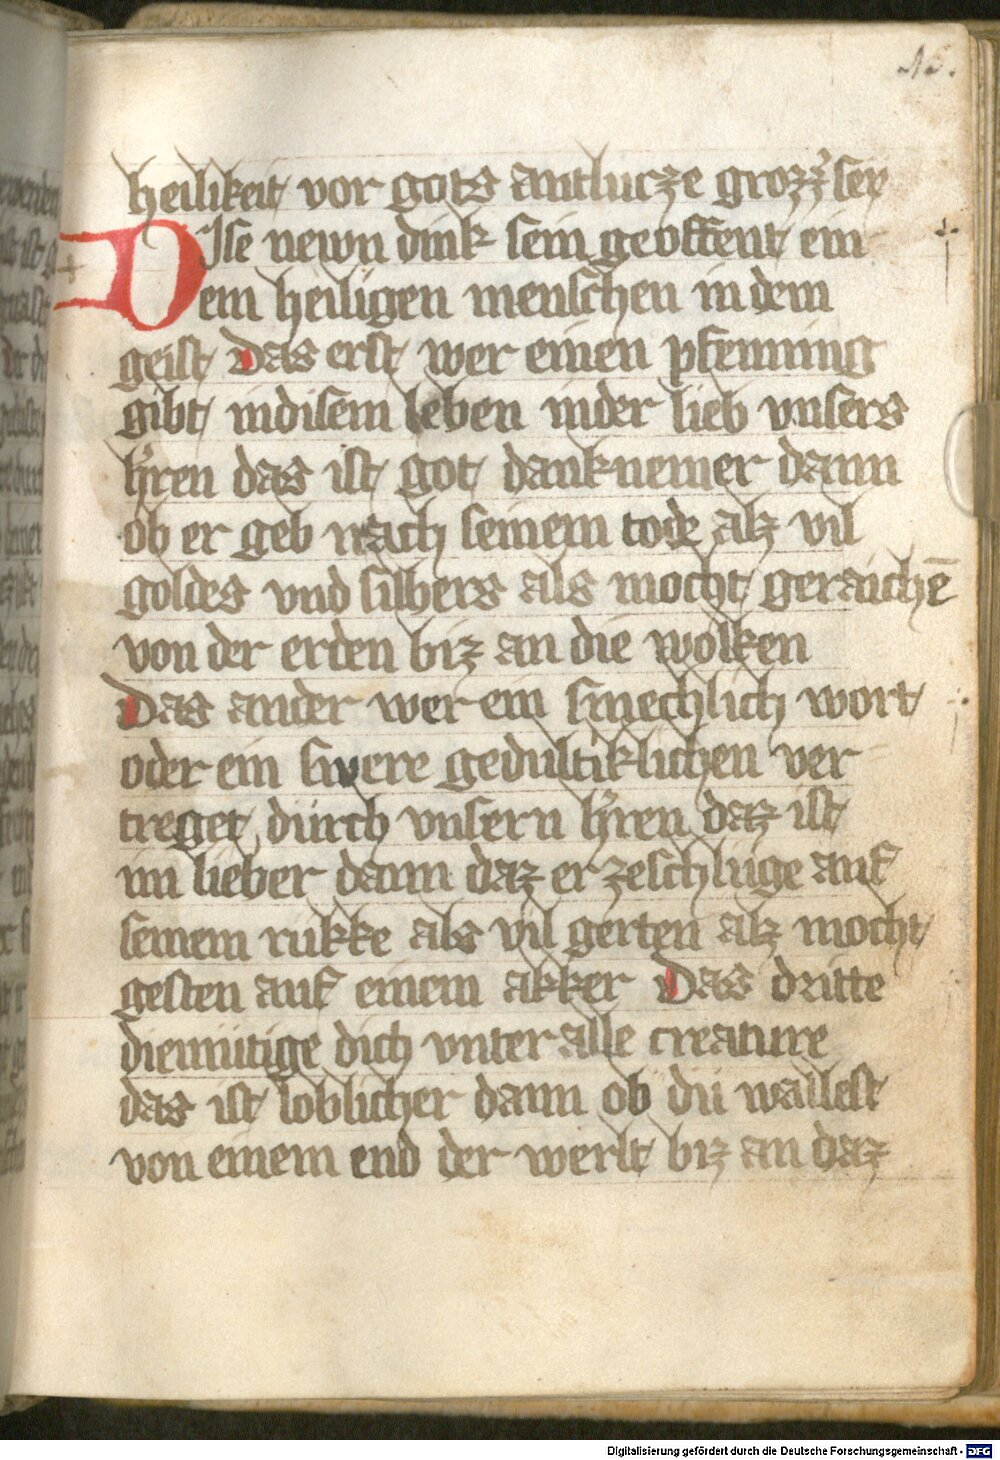 15.
heilikeit vor gots antlucze grozz̕ sey
DJse newn dink sein geoffent ein
em heiligen menschen in dem
geist Das erst wer einen pfenning
gibt in disem leben in der lieb vnsers
h̕ren das ist got danknemer dann
ob er geb nach seinem tode alz vil
goldes vnd silbers als mocht geraichē
von der erden biz an die wolken
Das ander wer ein smechlich wort
oder ein swere gedultiklichen ver
treget durch vnsern h̕ren daz ist
im lieber dann daz er zeschlüge auf
seinem rukke als vil gerten alz mocht
gesten auf einem akker Das dritte
diemütige dich vnter alle creature
das ist loblicher dann ob du wallest
von einem end der werlt biz an daz
Digitalisierung gefördert durch die Deutsche Forschungsgemeinschaft - DFG